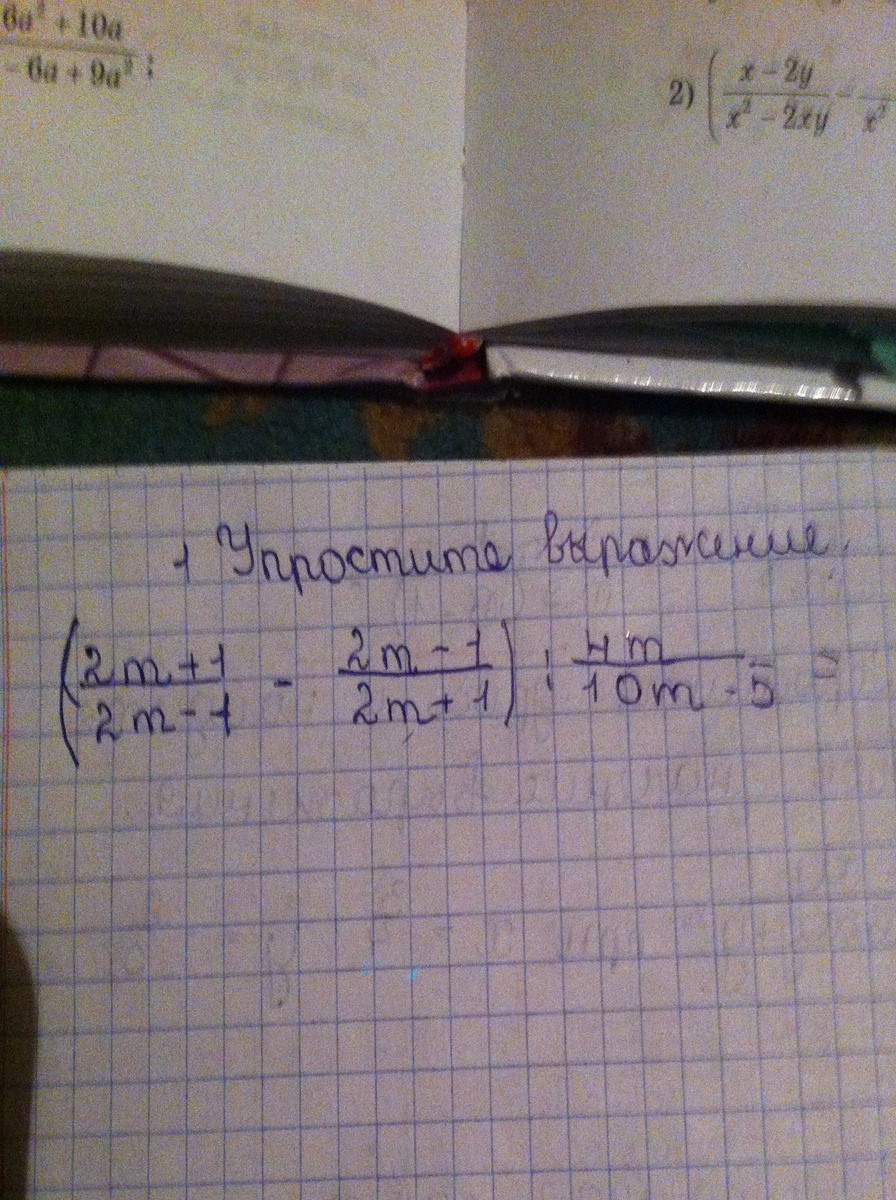 6a² + 10a
- 6a + 9a² ;
2) ( x - 2y
x² - 2xy - x²
1 Упростите выражение.
(2m+1 / 2m-1 - 2m-1 / 2m+1) : 4m / 10m-5 =